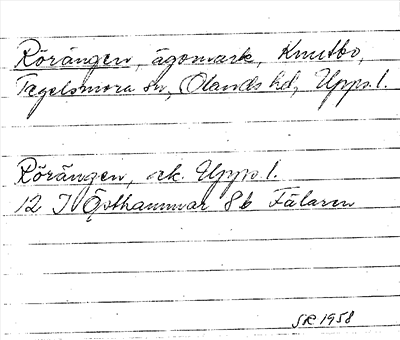 Rörängen, ägomark, Knutbo,
Tegelsmora sn, Olands hd, Upps. l.
Rörängen, ek. Upps. l.
12 I Östhammar 8b Fälaren
SR 1958